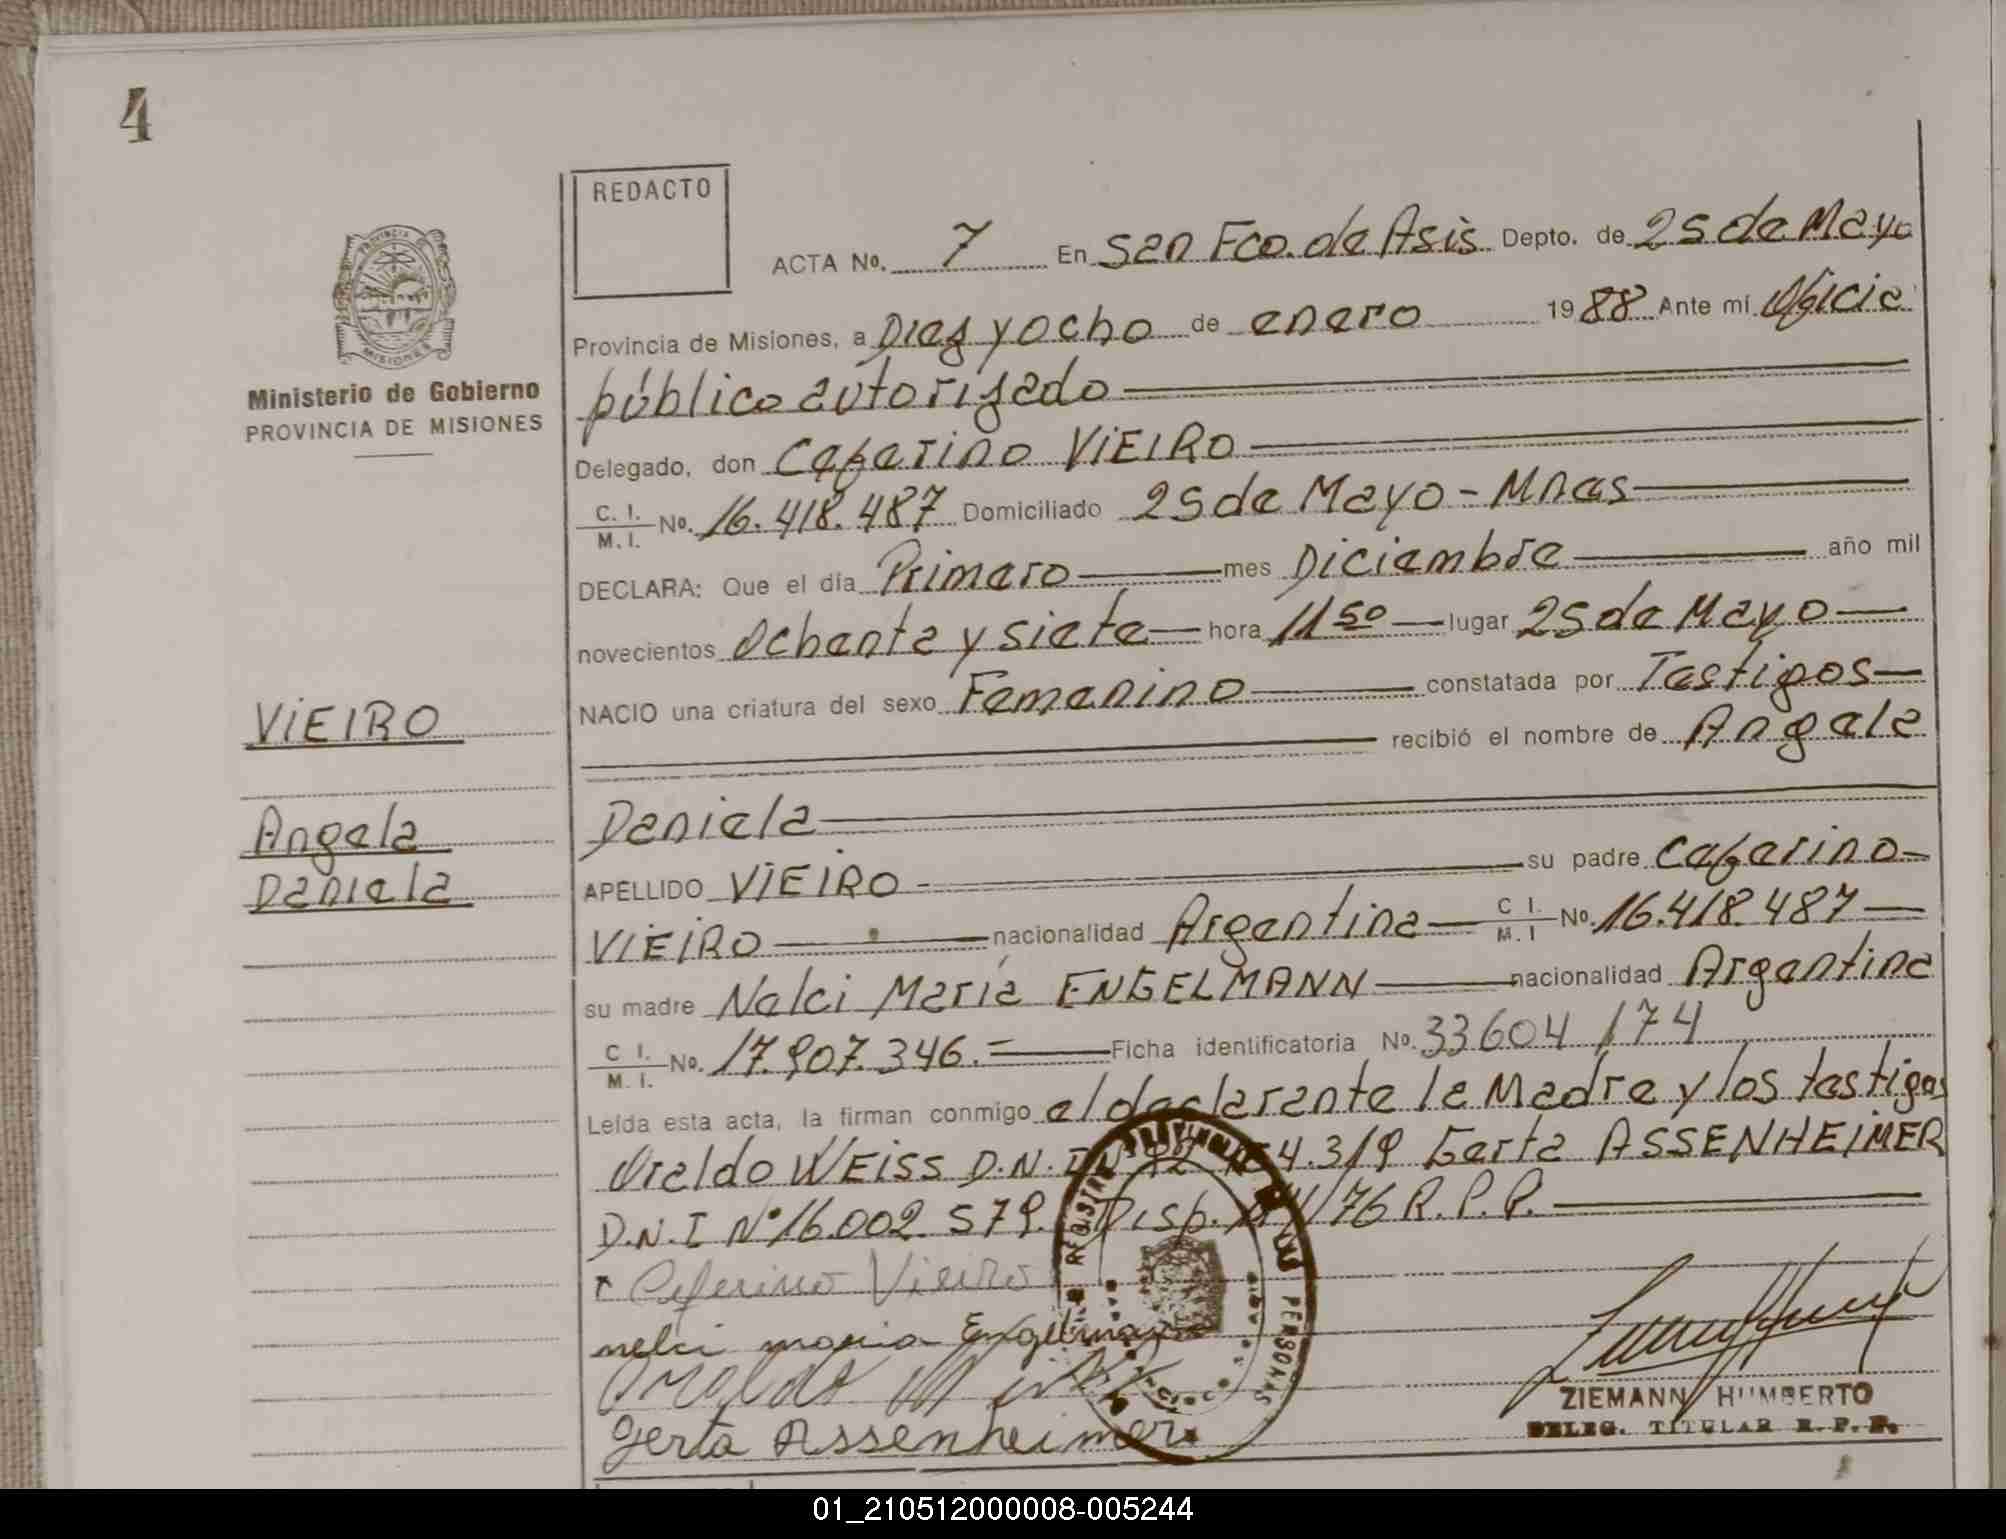 4
REDACTO
ACTA No. 7 En San Fco. de Asis Depto. de 25 de Mayo
Provincia de Misiones, a Diez y ocho de enero 1988 Ante mí Oficial
público autorizado
Ministerio de Gobierno
PROVINCIA DE MISIONES
Delegado, don Ceferino VIEIRO
C. I. / M. I. No. 16.418.487 Domiciliado 25 de Mayo - Mnes
DECLARA: Que el día Primero mes Diciembre año mil
novecientos Ochenta y siete hora 11 50 lugar 25 de Mayo
NACIO una criatura del sexo Femenino constatada por Testigos
recibió el nombre de Angela
VIEIRO
Angela
Daniela
Daniela
APELLIDO VIEIRO su padre Ceferino
VIEIRO nacionalidad Argentina C I. / M. I No. 16.418.487
su madre Nelci María ENGELMANN nacionalidad Argentina
C I. / M. I. No. 17.907.346.= Ficha identificatoria No. 33604/174
Leída esta acta, la firman conmigo el declarante la Madre y los testigos
WEISS D.N.I 4.319 Gerta ASSENHEIMER
D.N.I Nº 16.002.579. Disp. /76 R.P.P.
Ceferino Vieiro
nelci maria Engelman
Gerta Assenheimer
REGISTRO PROVINCIAL DE LAS PERSONAS
MISIONES
ZIEMANN HUMBERTO
DELEG. TITULAR R. P. P.
01_210512000008-005244